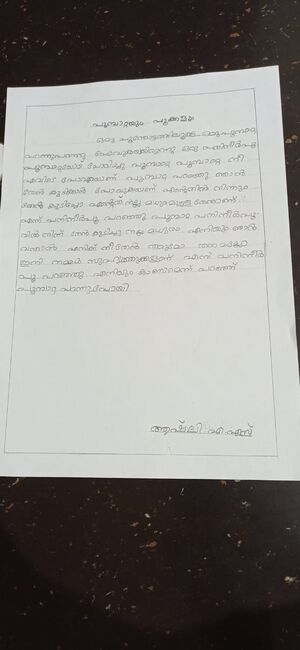 പൂമ്പാറ്റയും പൂക്കളും
ഒരു പൂന്തോട്ടത്തിലൂടെ ഒരു പൂമ്പാറ്റ
പറന്നുപറന്നു പോവുകയായിരുന്നു ഒരു പനിനീർപൂ
പൂമ്പാറ്റയോട് ചോദിച്ചു പൂമ്പാറ്റേ പൂമ്പാറ്റേ നീ
എവിടെ പോവുകയാണ് പൂമ്പാറ്റ പറഞ്ഞു ഞാൻ
തേൻ കുടിക്കാൻ പോവുകയാണ് എന്നിൽ നിന്നും
തേൻ കുടിച്ചോ എന്റേത് നല്ല മധുരമുള്ള തേനാണ്
എന്ന് പനിനീർപൂ പറഞ്ഞു പൂമ്പാറ്റ പനിനീർപൂ
വിൽ നിന്ന് തേൻ കുടിച്ചു നല്ല മധുരം എനിയും ഞാൻ
വരാൻ എനിക്ക് നീ തേൻ തരുമോ തരാമല്ലോ
ഇനി നമ്മൾ സുഹൃത്തുക്കളാണ് എന്ന് പനിനീർ
പൂ പറഞ്ഞു എനിയും കാണാമെന്ന് പറഞ്ഞ്
പൂമ്പാറ്റ പറന്നുപോയി
ആഷ്ലി എ എസ്